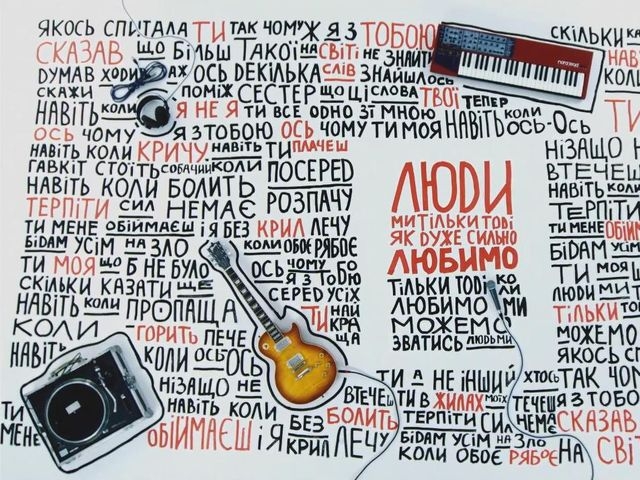 ЯКОСЬ СПИТАЛА ТИ ТАК ЧОМУ Ж Я З ТОБОЮ
СКАЗАВ ЩО БІЛЬШ ТАКОЇ НА СВІТІ НЕ ЗНАЙТИ
ДУМАВ ОСЬ ДЕКІЛЬКА СЛІВ ЗНАЙШЛОСЬ
СКАЖИ ПОМІЖ СЕСТЕР ЩО ЦІ СЛОВА ТВОЇ ТЕПЕР
НАВІТЬ КОЛИ Я НЕ Я ТИ ВСЕ ОДНО ЗІ МНОЮ
ОСЬ ЧОМУ Я З ТОБОЮ ОСЬ ЧОМУ ТИ МОЯ НАВІТЬ КОЛИ ОСЬ-ОСЬ
НАВІТЬ КОЛИ КРИЧУ НАВІТЬ ТИ ПЛАЧЕШ
ГАВКІТ СТОЇТЬ СОБАЧИЙ КОЛИ ПОСЕРЕД
НАВІТЬ КОЛИ БОЛИТЬ РОЗПАЧУ
ТЕРПІТИ СИЛ НЕМАЄ
ТИ МЕНЕ ОБІЙМАЄШ І Я БЕЗ КРИЛ ЛЕЧУ
БІДАМ УСІМ НА ЗЛО КОЛИ ОБОЄ РЯБОЄ
ТИ МОЯ ЩО Б НЕ БУЛО ОСЬ ЧОМУ Я З ТОБОЮ
СКІЛЬКИ КАЗАТИ ЩЕ СЕРЕД УСІХ
НАВІТЬ КОЛИ ПРОПАЩА ТИ НАЙКРАЩА
КОЛИ ГОРИТЬ ПЕЧЕ
НАВІТЬ КОЛИ ОСЬ-ОСЬ
НІЗАЩО НЕ ВТЕЧЕШ
ТИ НАВІТЬ КОЛИ БОЛИТЬ
МЕНЕ ОБІЙМАЄШ І Я БЕЗ КРИЛ ЛЕЧУ
ЛЮДИ
МИ ТІЛЬКИ ТОДІ
ЯК ДУЖЕ СИЛЬНО
ЛЮБИМО
ТІЛЬКИ ТОДІ КО
ЛЮБИМО МИ
МОЖЕМО
ЗВАТИСЬ ЛЮДЬМИ
ТИ А НЕ ІНШИЙ ХТОСЬ
ТИ В ЖИЛАХ МОЇХ ТЕЧЕШ
ТЕРПІТИ СИЛ НЕМА
БІДАМ УСІМ НА ЗЛО
КОЛИ ОБОЄ РЯБОЄ
СКІЛЬКИ
НІЗАЩО Н
ВТЕЧЕШ
НАВІТЬ КОЛИ
ТЕРПІТИ
ТИ МЕНЕ ОБІЙМ
БІДАМ УСІМ
ТИ МОЯ
ЛЮДИ МИ Т
ТІЛЬКИ
МОЖЕМО
ЯКОСЬ СП
ТАК ЧОМ
Я З ТОБО
СКАЗАВ
НА СВІ